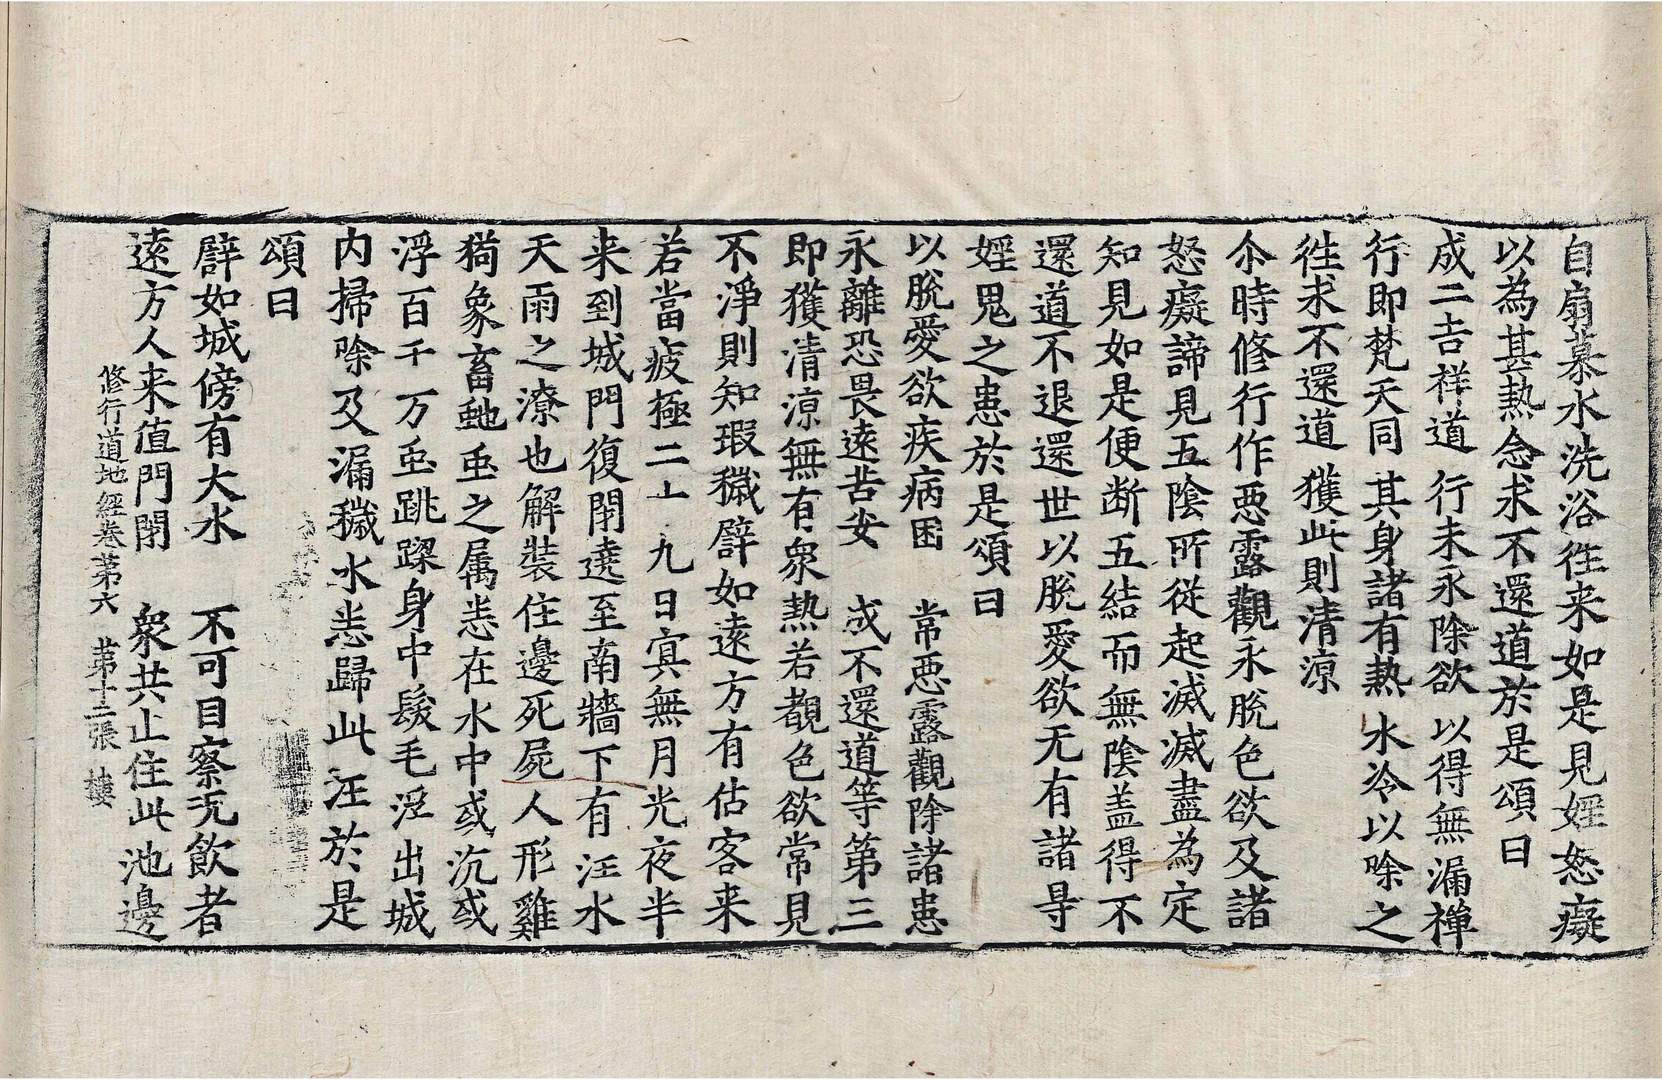 自扇慕水洗浴往来如是見婬怒癡
以為甚熱念求不還道於是頌曰
成二吉祥道 行未永除欲 以得無漏禪
行即梵天同 其身諸有熱 水冷以除之
往求不還道 獲此則清涼
尒時修行作惡露觀永脫色欲及諸
怒癡諦見五陰所從起滅滅盡為定
知見如是便断五結而無陰盖得不
還道不退還世以脫愛欲无有諸㝵
婬鬼之患於是頌曰
以脫愛欲疾病困 常惡露觀除諸患
永離恐畏遠苦安 成不還道等第三
即獲清涼無有衆熱若覩色欲常見
不淨則知瑕穢譬如遠方有估客来
若當疲極二十九日冥無月光夜半
来到城門復閉遶至南牆下有汪水
天雨之潦也解裝住邊死屍人形雞
狗象畜虵䖝之属悉在水中或沉或
浮百千万䖝跳踯身中髮毛浮出城
内掃除及漏穢水悉歸此汪於是
頌曰
譬如城傍有大水 不可目察况飲者
遠方人来值門閉 衆共止住此池邊
修行道地經卷苐六 苐十三張 樓